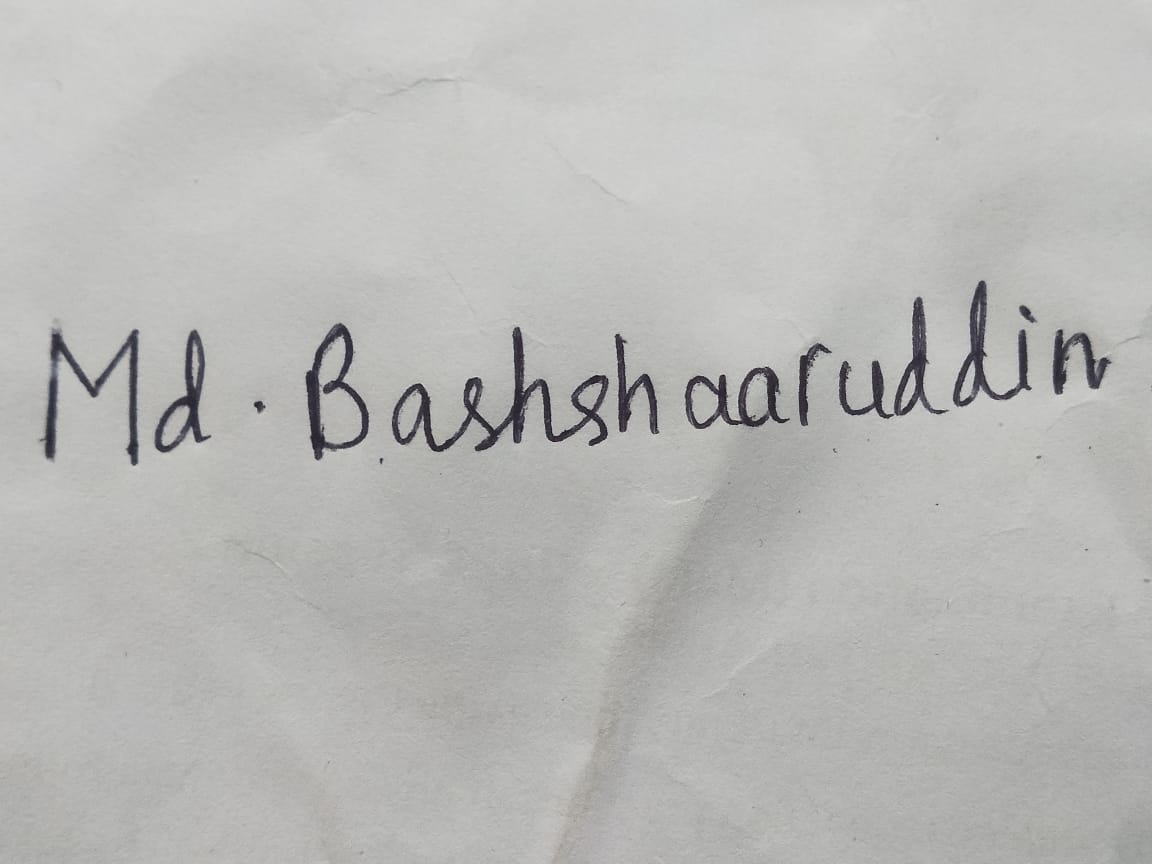 Md. Bashshaaruddin